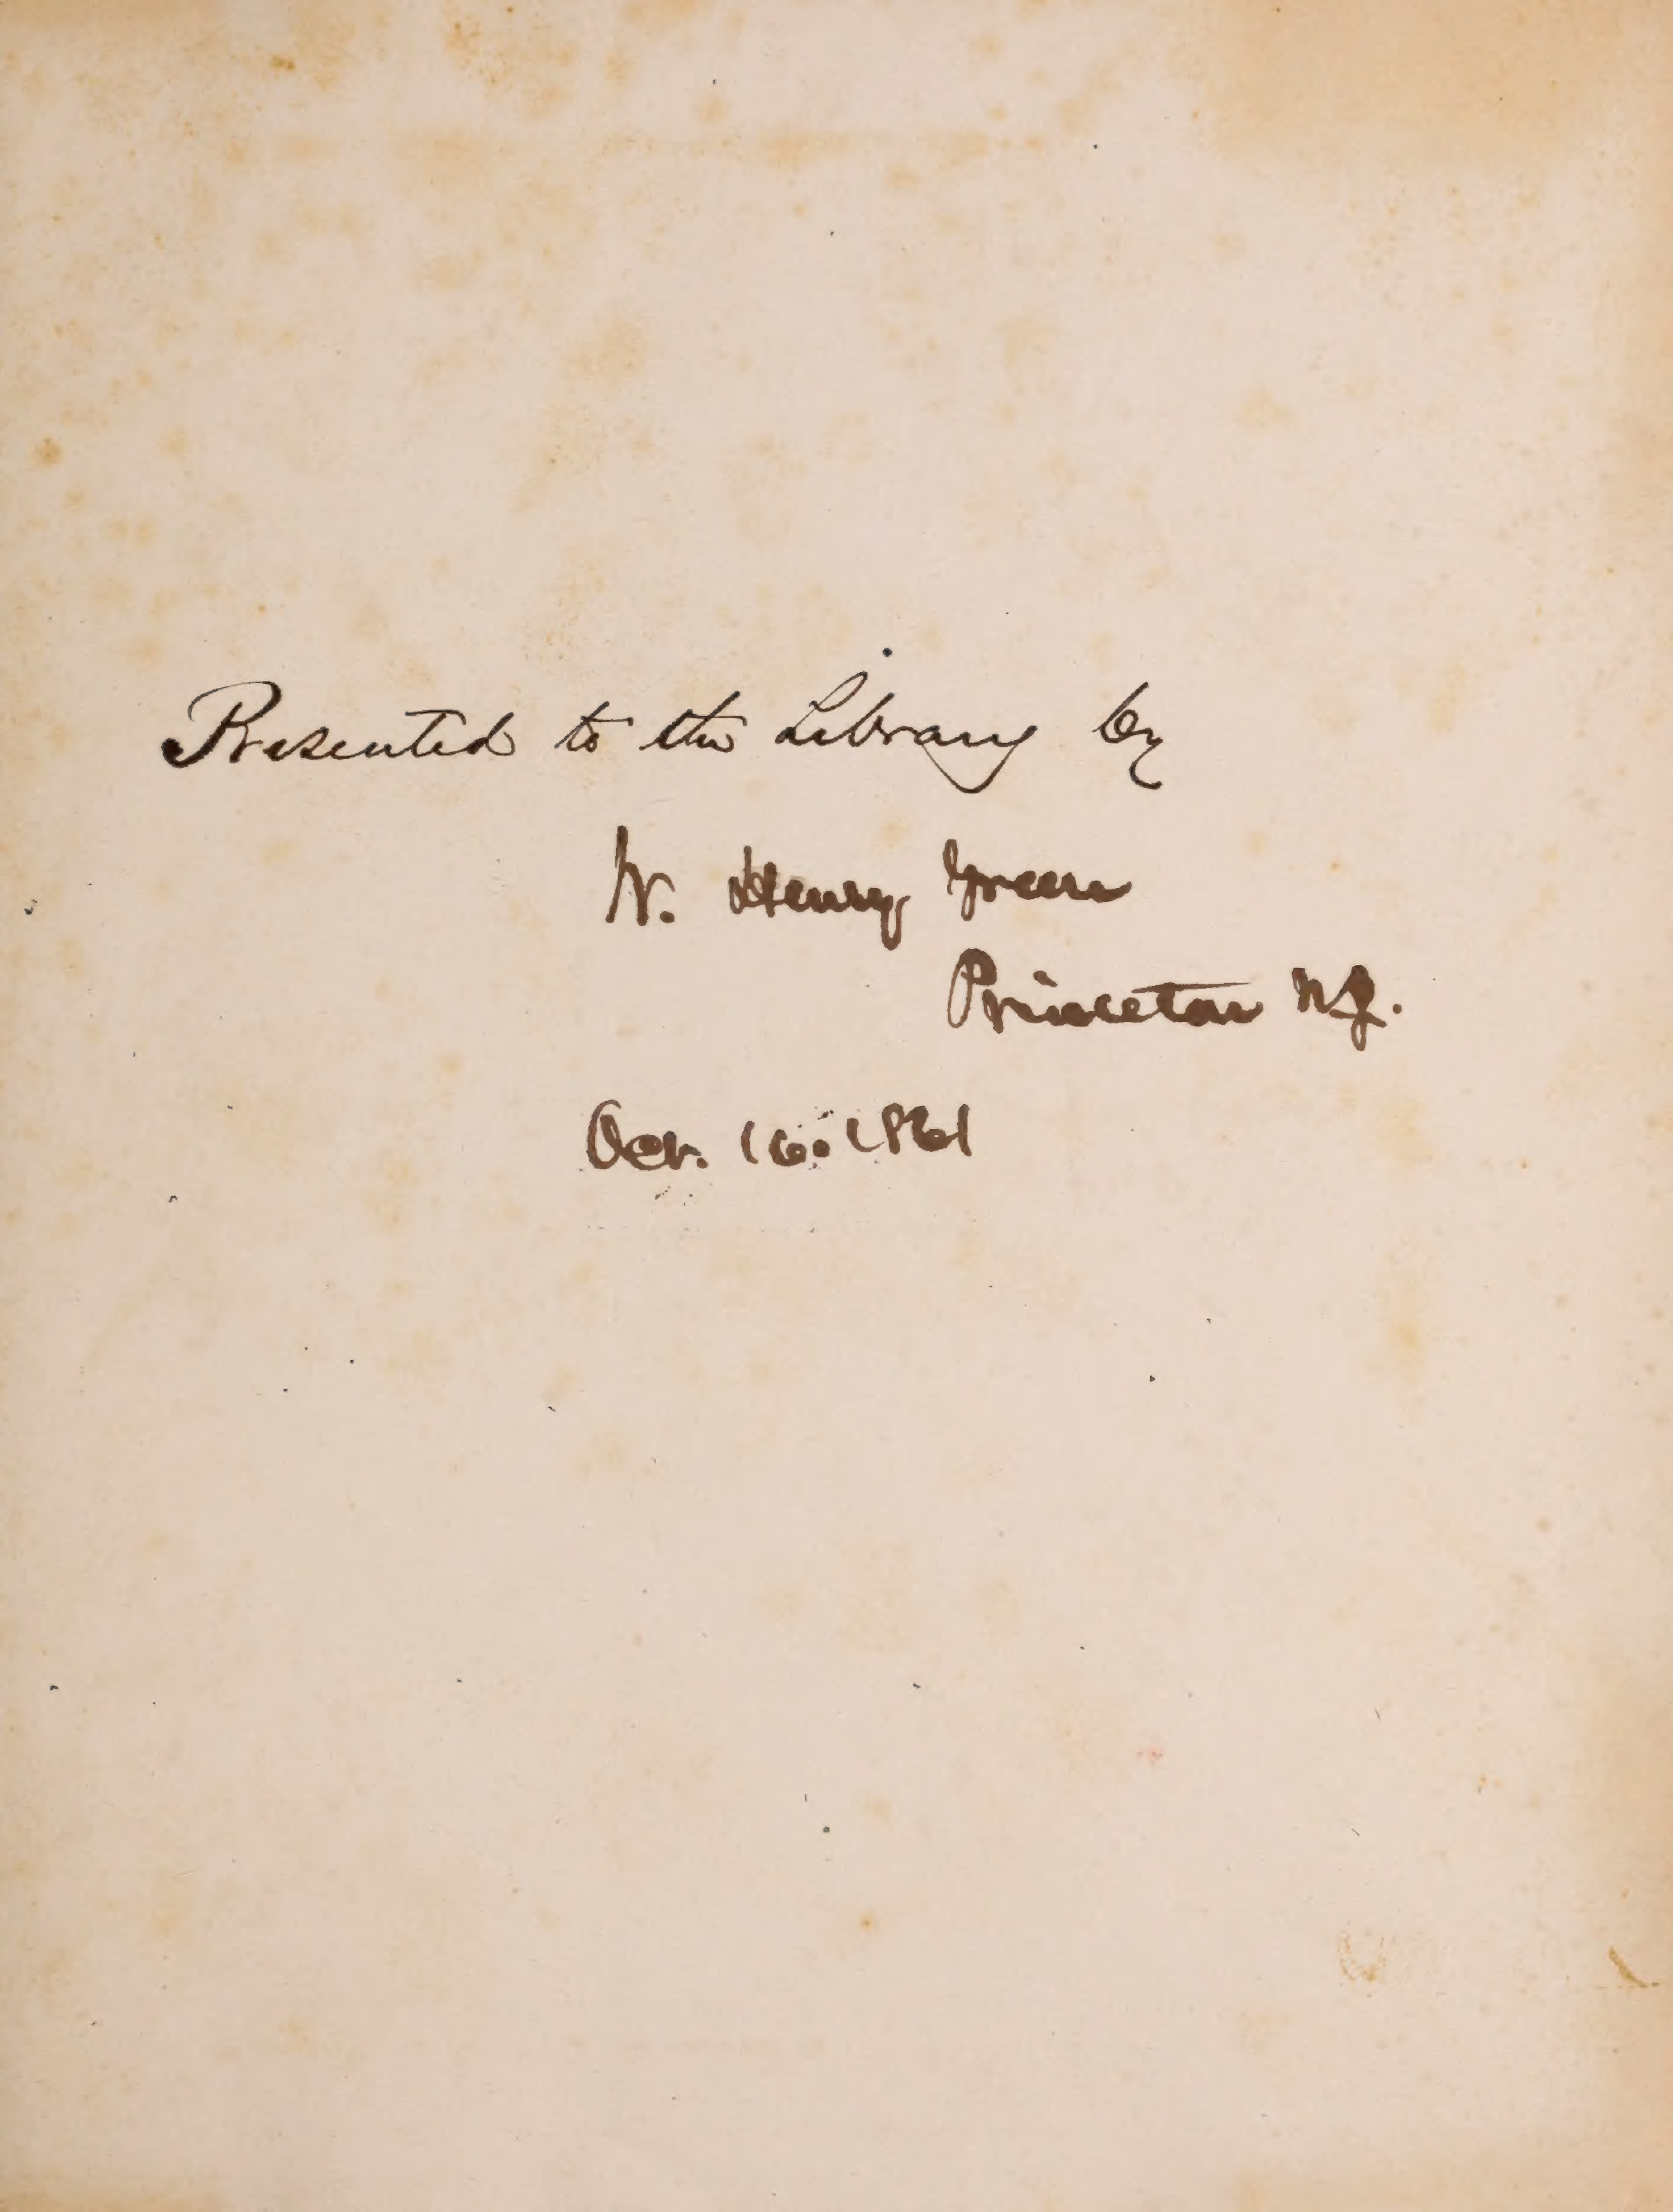 Presented to the Library by
W. Henry Green
Princeton N.J.
Oct. 16. 1861